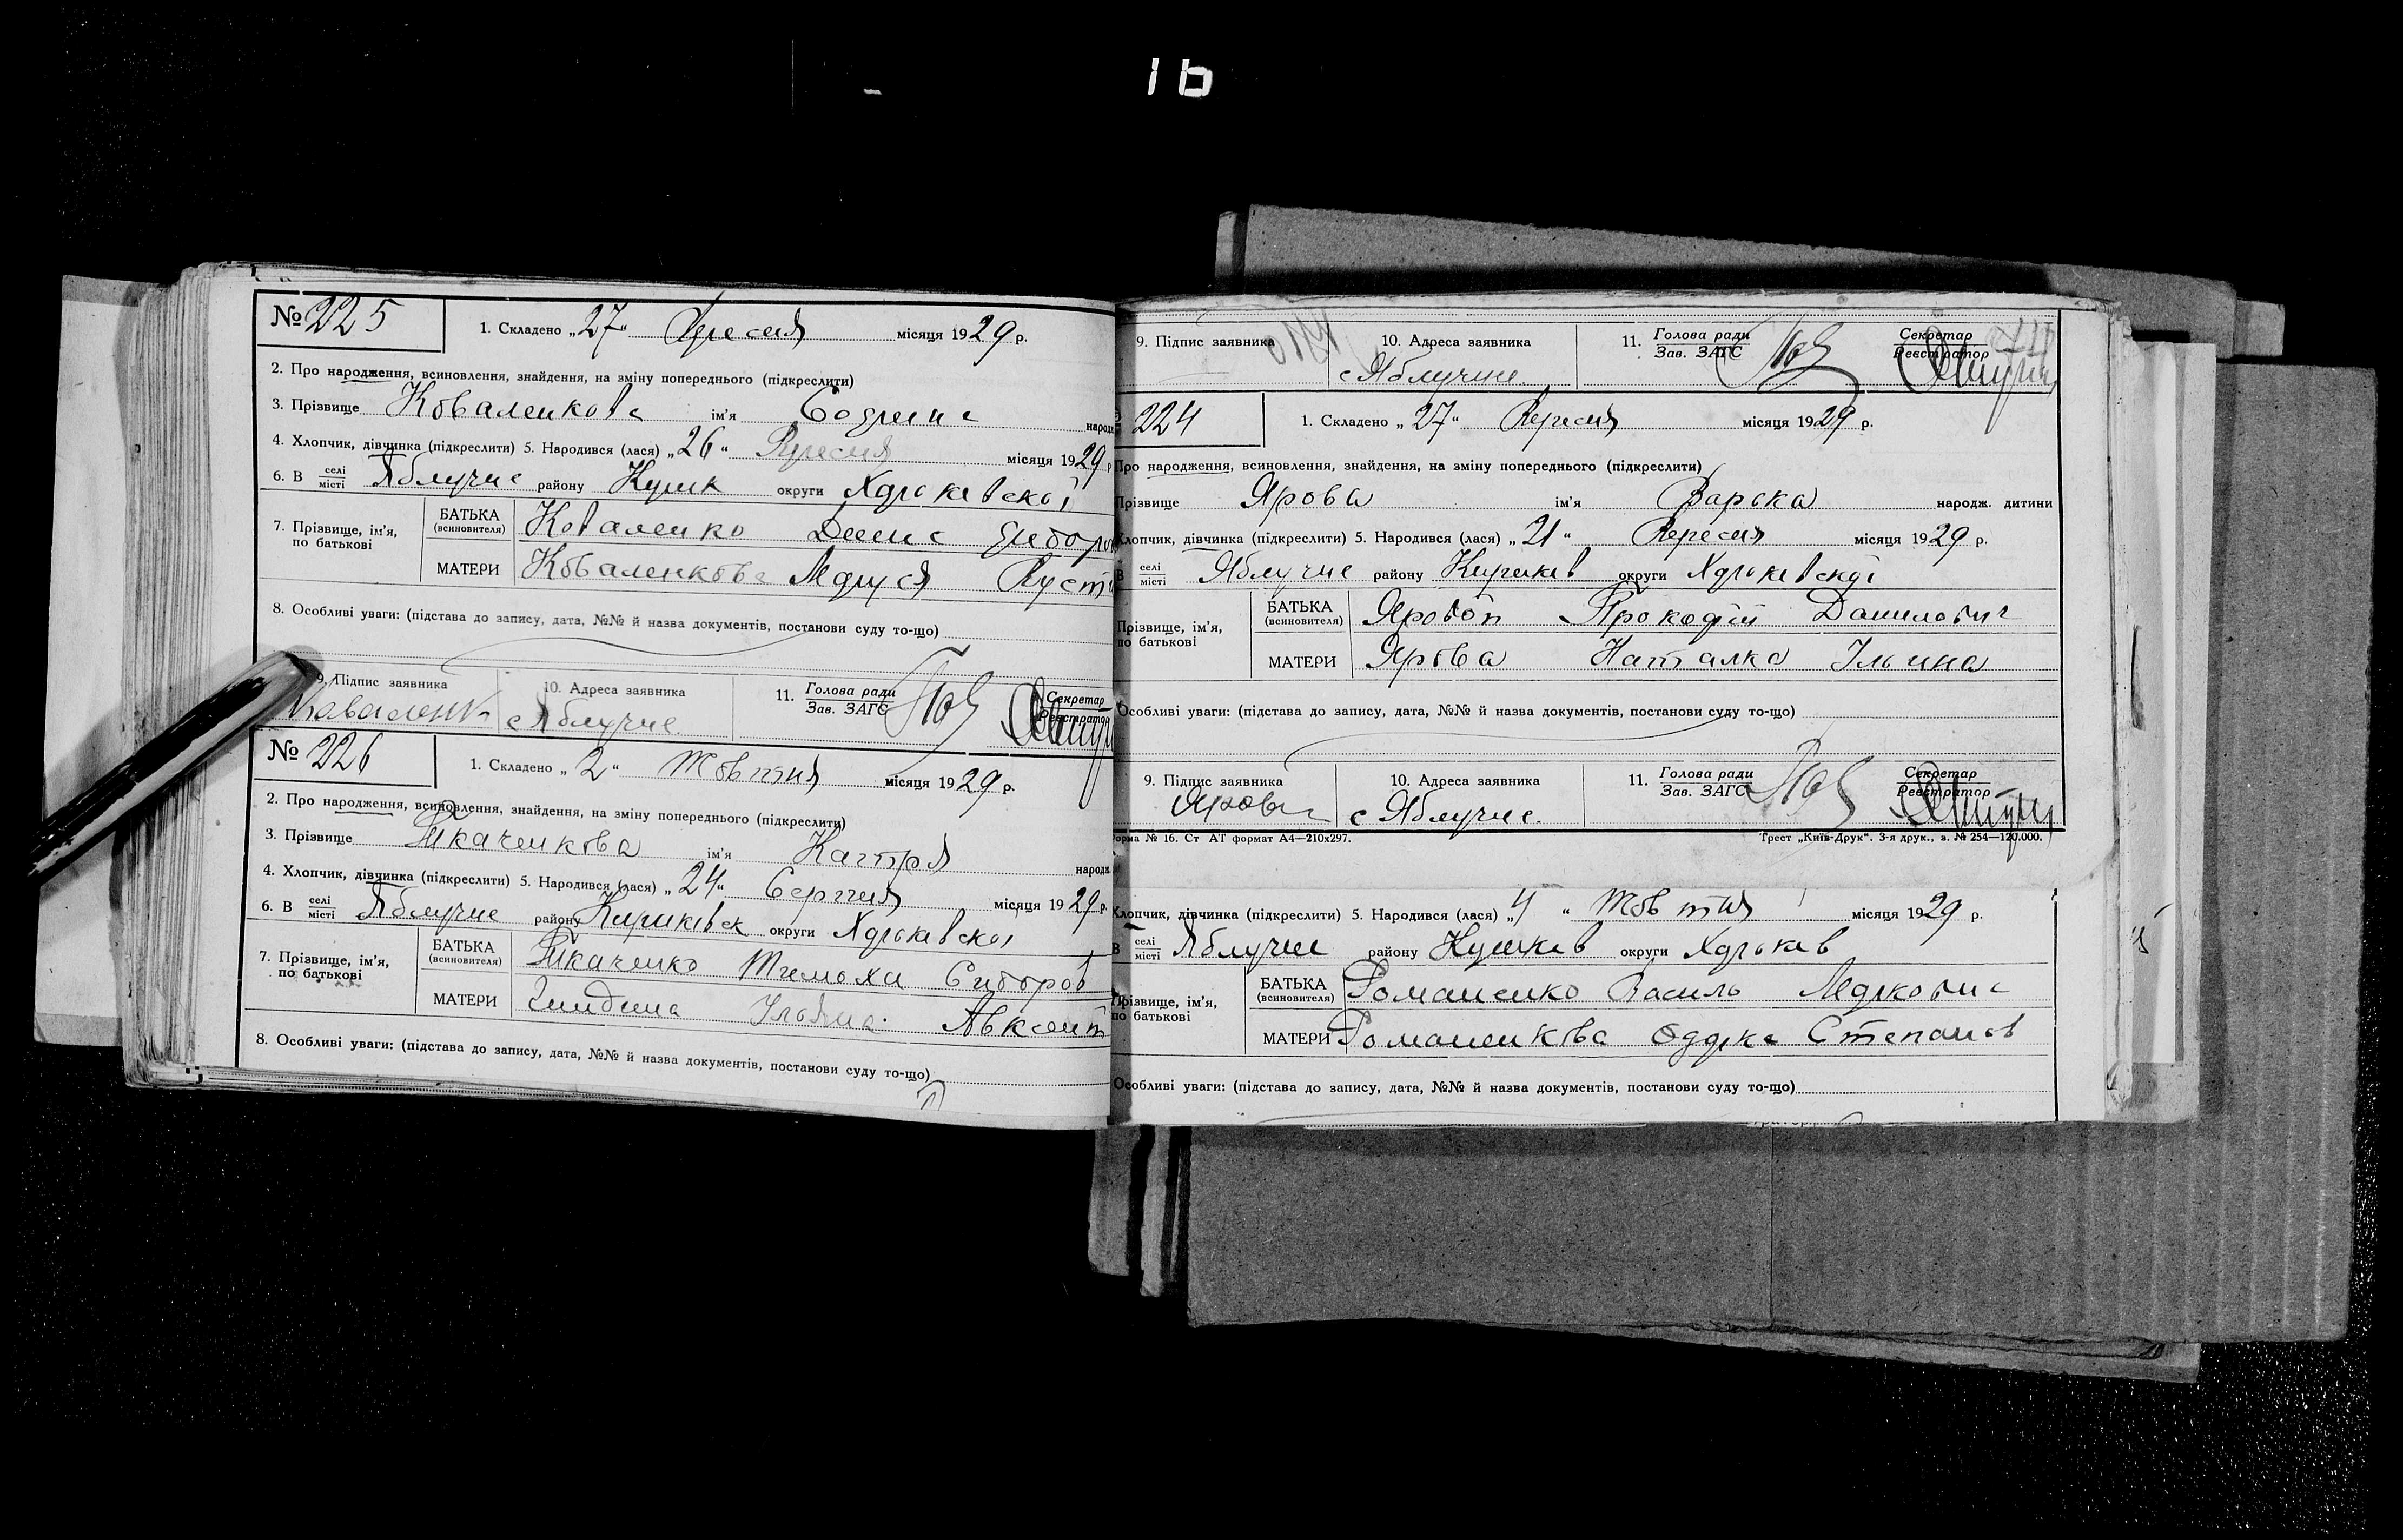 16
№ 225
1. Складено „27“ Вересня місяця 1929 р.
2. Про народження, всиновлення, знайдення, на зміну попереднього (підкреслити)
3. Прізвище Коваленкова ім'я народж
4. Хлопчик, дівчинка (підкреслити) 5. Народився (лася) „26“ Вересня місяця 1929 р
6. В селі місті Яблучне району округи Харьківської
7. Прізвище, ім'я, по батькові
БАТЬКА (всиновителя) Коваленко Денис
МАТЕРИ Коваленкова Маруся
8. Особливі уваги: (підстава до запису, дата, №№ й назва документів, постанови суду то-що)
9. Підпис заявника 10. Адреса заявника 11. Голова ради Зав. ЗАГС Секретар Реєстратор
Коваленк с Яблучне
№ 226
1. Складено „2“ Жовтня місяця 1929 р.
2. Про народження, всиновлення, знайдення, на зміну попереднього (підкреслити)
3. Прізвище Ткаченкова ім'я Катря народж
4. Хлопчик, дівчинка (підкреслити) 5. Народився (лася) „24“ місяця 1929 р.
6. В селі місті Яблучне району Кириківськ округи Харьківської
7. Прізвище, ім'я, по батькові
БАТЬКА (всиновителя) Ткаченко Тимоха Сидоров
МАТЕРИ Уляна Авксент
8. Особливі уваги: (підстава до запису, дата, №№ й назва документів, постанови суду то-що)
9. Підпис заявника 10. Адреса заявника 11. Голова ради Зав. ЗАГС Секретар Реєстратор
с Яблучне.
224
1. Складено „27“ Вересня місяця 1929 р.
Про народження, всиновлення, знайдення, на зміну попереднього (підкреслити)
Прізвище Ярова ім'я Варька народж. дитини
Хлопчик, дівчинка (підкреслити) 5. Народився (лася) „21“ Вересня місяця 1929 р.
В селі місті Яблучне району Кириків округи Харьківської
Прізвище, ім'я, по батькові
БАТЬКА (всиновителя) Яровой Прокофій Данилович
МАТЕРИ Ярова Наталка Ільина
Особливі уваги: (підстава до запису, дата, №№ й назва документів, постанови суду то-що)
9. Підпис заявника 10. Адреса заявника 11. Голова ради Зав. ЗАГС Секретар Реєстратор
с Яблучне.
орма № 16. Ст АТ формат А4—210х297. Трест „Київ-Друк“. 3-я друк., з. № 254—120.000.
Хлопчик, дівчинка (підкреслити) 5. Народився (лася) „4“ Жовтня місяця 1929 р.
В селі місті Яблучне району округи Харьків
Прізвище, ім'я, по батькові
БАТЬКА (всиновителя) Романенко Василь Маркович
МАТЕРИ Романенкова Одарка Степанов
Особливі уваги: (підстава до запису, дата, №№ й назва документів, постанови суду то-що)